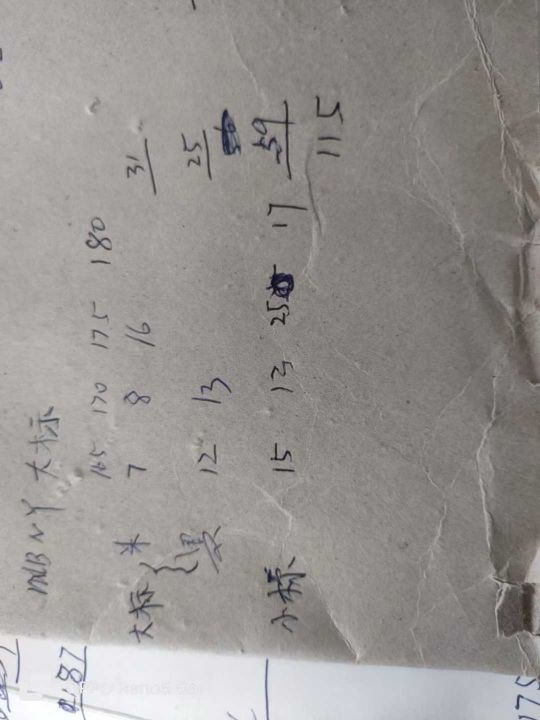 MLB NY 大标
165 170 175 180
大标 米 7 8 16 31
黑 12 13 25
小标 15 13 25 17 59
115